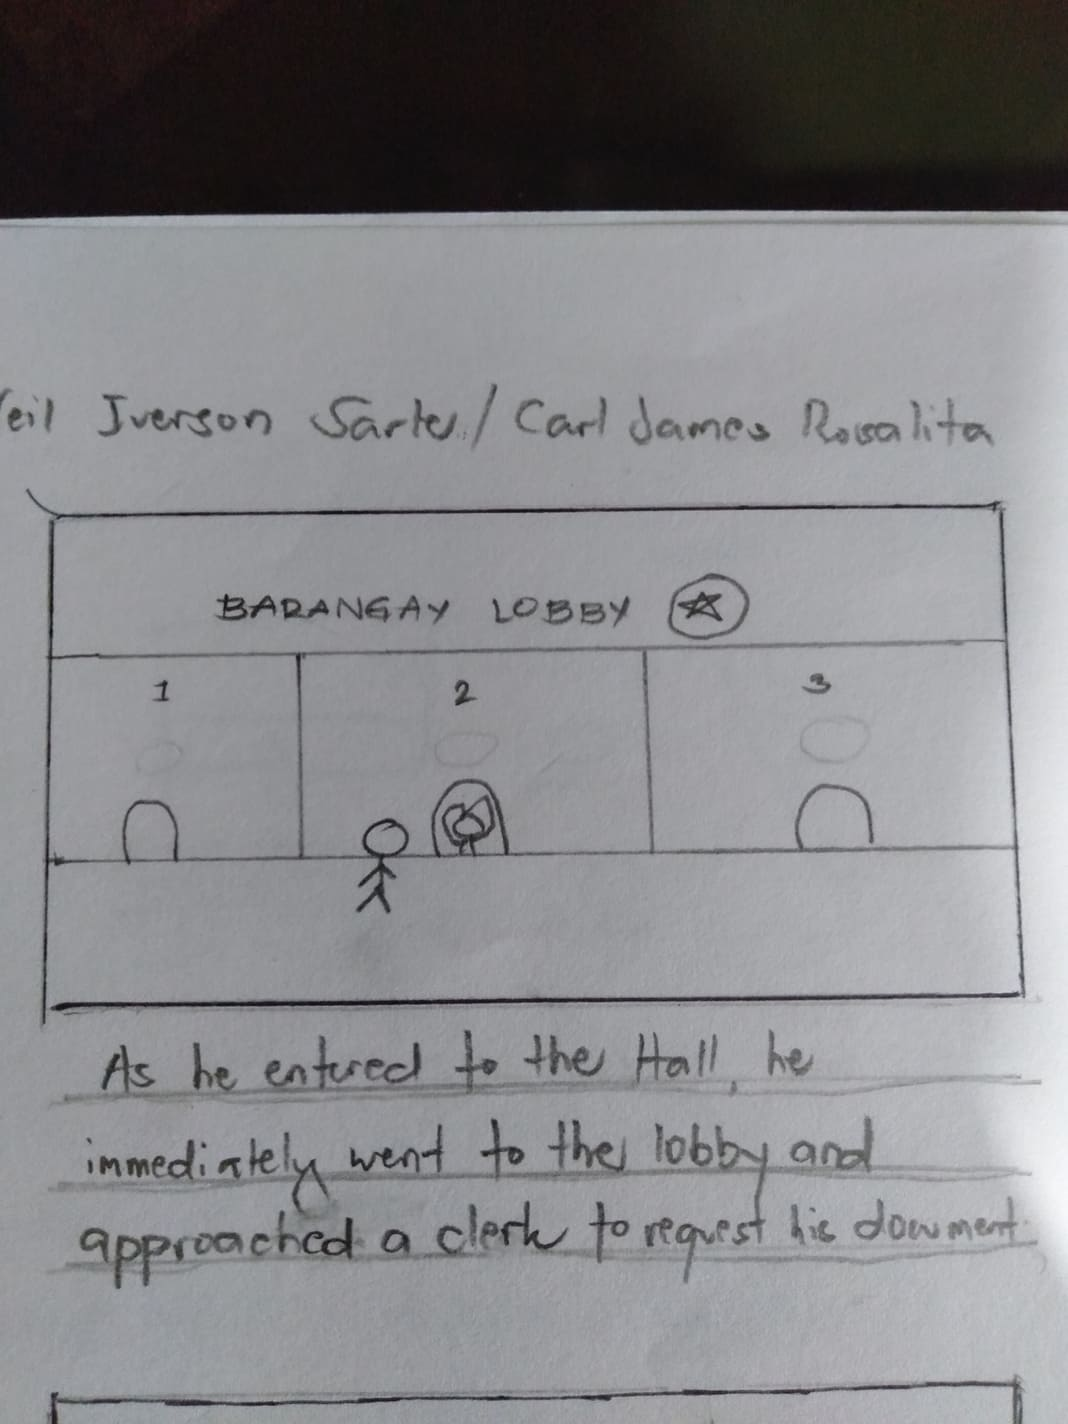 eil Iverson Sarte / Carl James Rosalita
BARANGAY LOBBY
1 2 3
As he entered to the Hall, he
immediately went to the lobby and
approached a clerk to request his document.